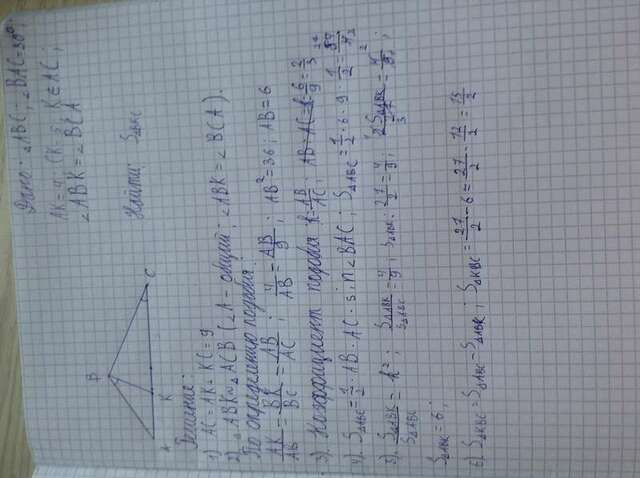 Дано: △ABC; ∠BAC=30°;
AK=4; CK=5; K∈AC;
∠ABK=∠BCA
Найти: S△KBC
B
A
K
C
Решение:
1) AC=AK+KC=9
2) △ABK∾△ACB (∠A - общий; ∠ABK=∠BCA).
По определению подобия:
AK/AB = BK/BC = AB/AC; 4/AB = AB/9; AB²=36; AB=6
3). Коэффициент подобия k=AB/AC; k=6/9=2/3
4). S△ABC=1/2·AB·AC·sin∠BAC; S△ABC=1/2·6·9·1/2=27/2
5). S△ABK/S△ABC=k²; S△ABK/S△ABC=4/9; S△ABK:27/2=4/9;
S△ABK=6;
6). S△KBC=S△ABC-S△ABK; S△KBC=27/2-6=27/2-12/2=15/2